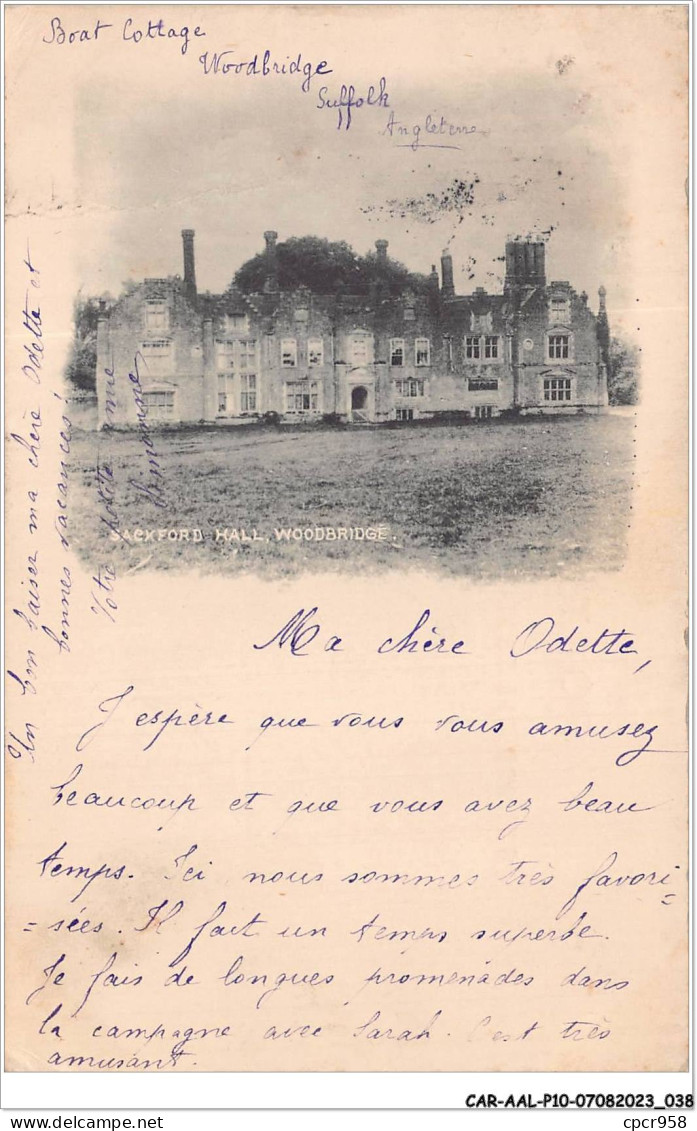 Boat Cottage
Woodbridge
Suffolk
Angleterre
SACKFORD HALL, WOODBRIDGE.
Ma chère Odette,
J'espère que vous vous amusez
beaucoup et que vous avez beau
temps. Ici nous sommes très favori
= sées. Il fait un temps superbe.
Je fais de longues promenades dans
la campagne avec Sarah. C'est très
amusant.
Un bon baiser ma chère Odette et
bonnes vacances!
Votre petite amie
CAR-AAL-P10-07082023_038
cpcr958
Delcampe.net